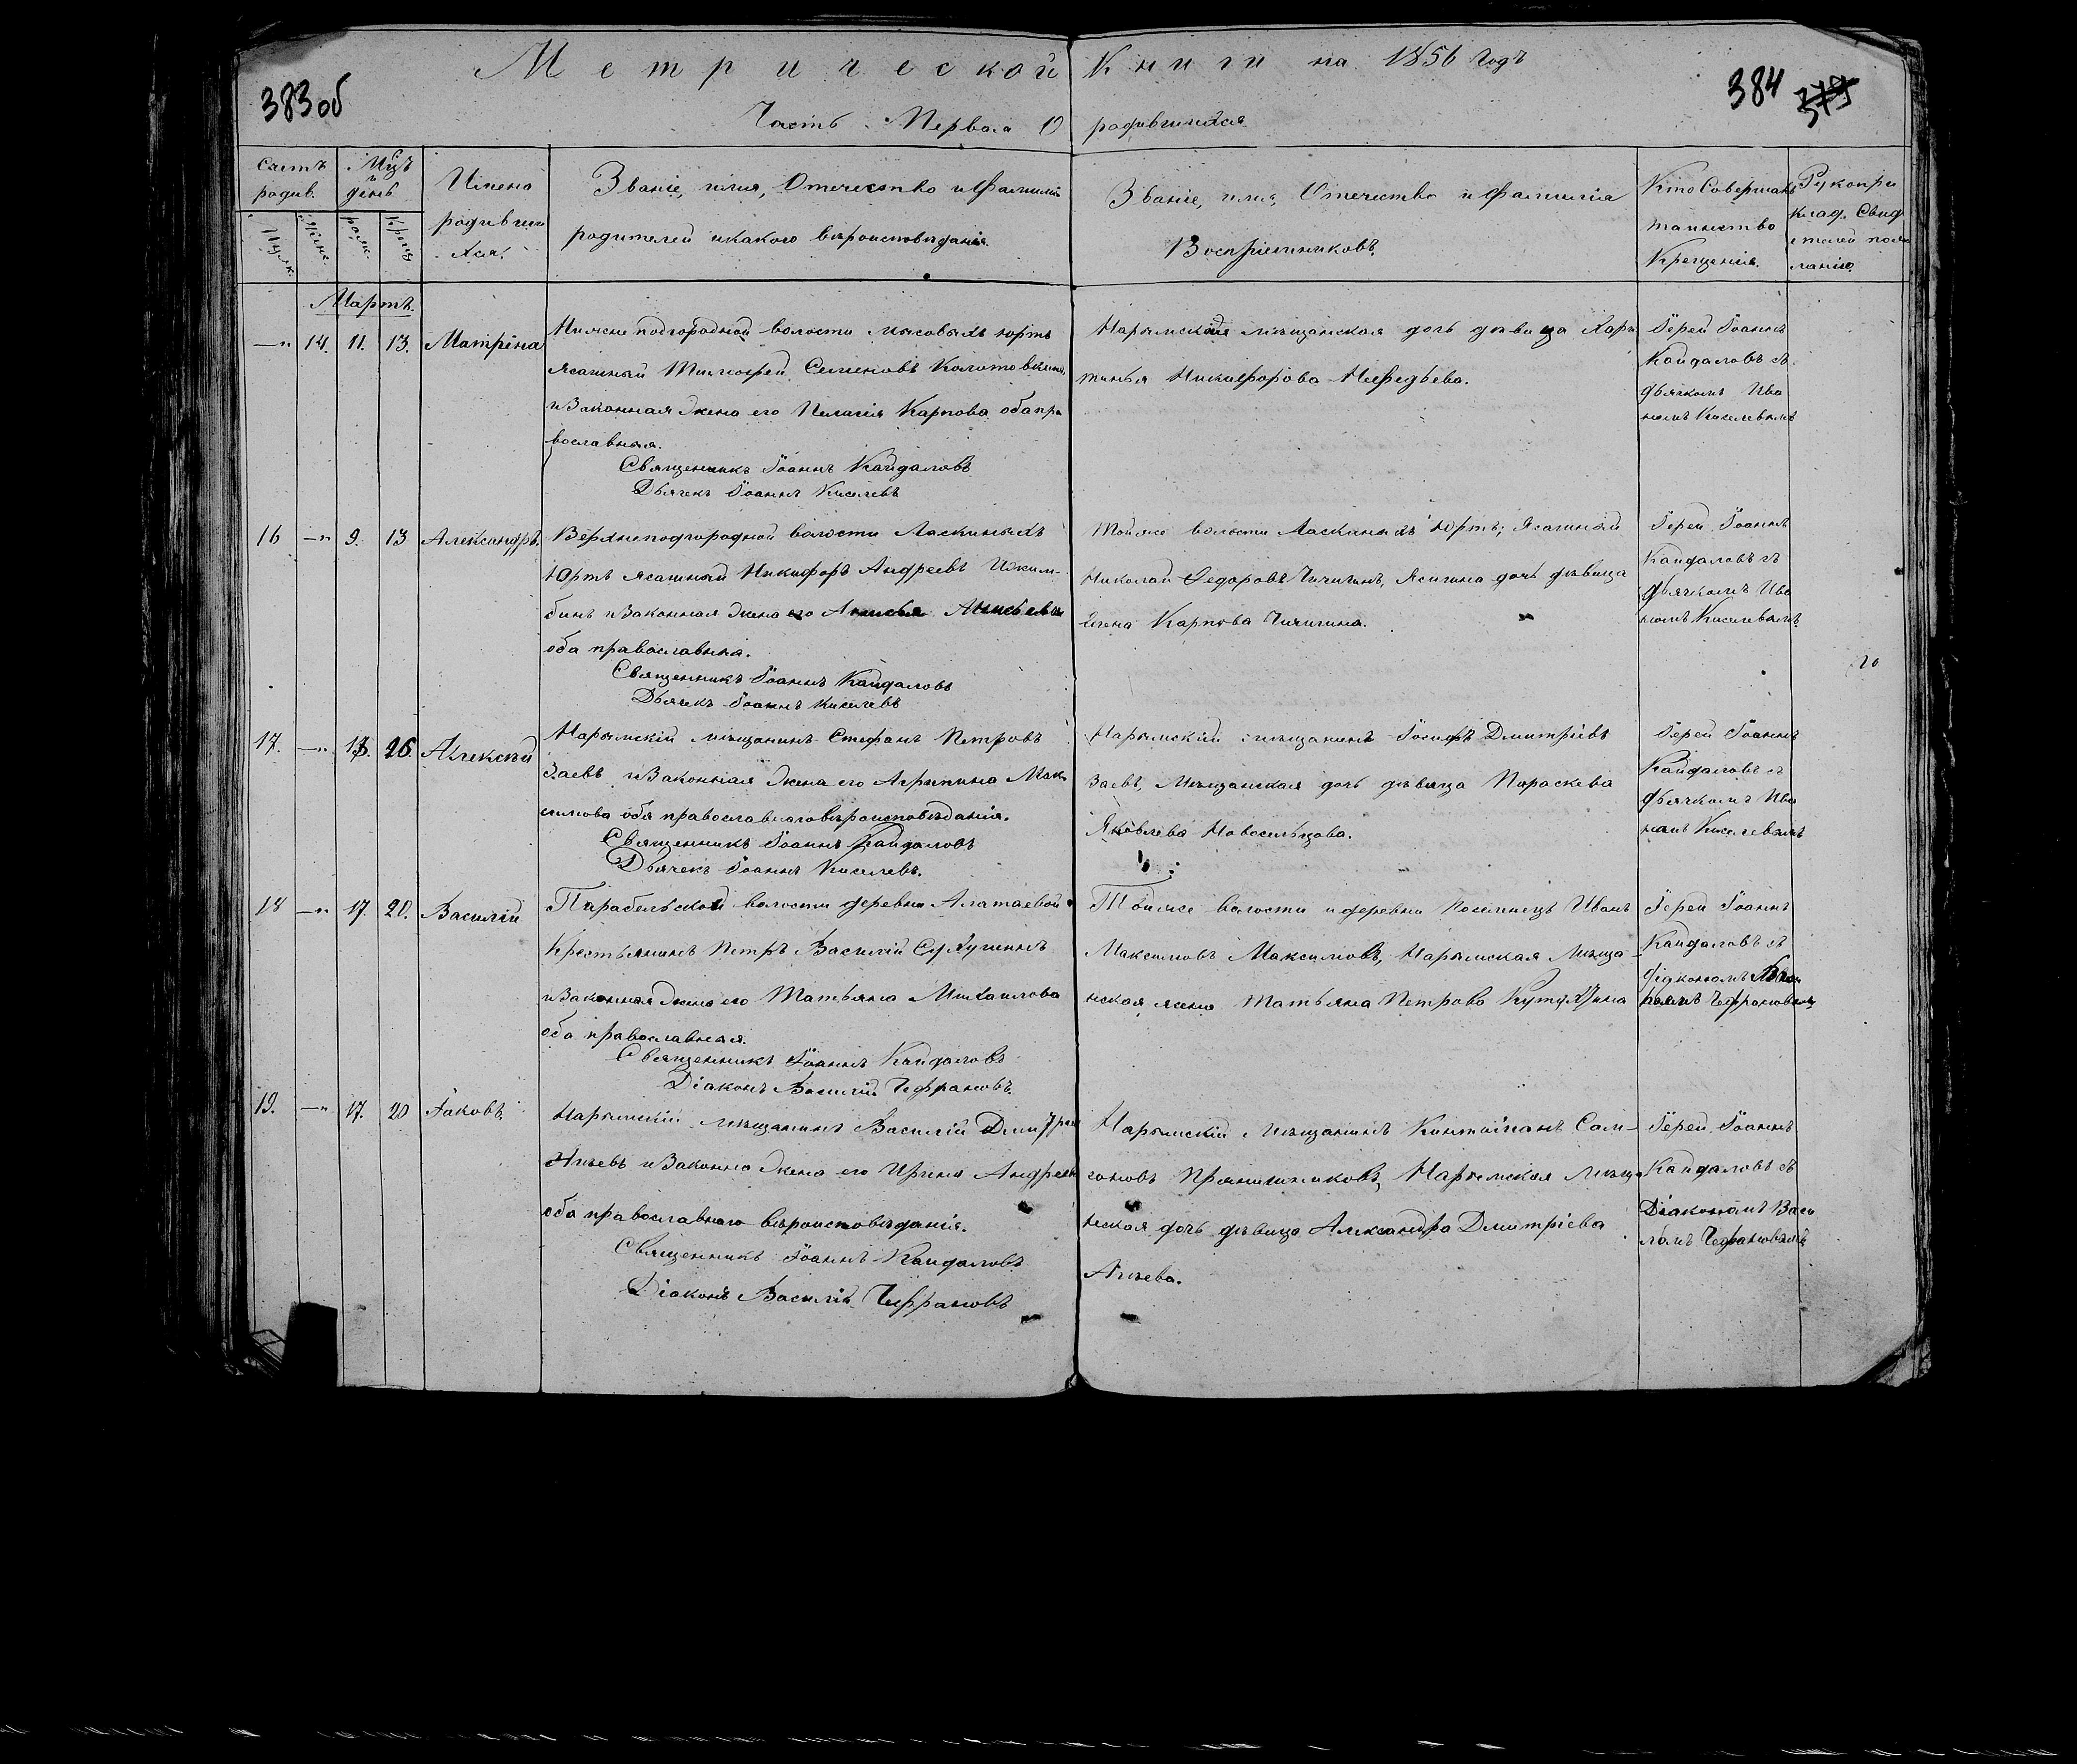 Метрической Книги на 1856 Годъ
383об
384
379
Часть Первая О родившихся
Счетъ родив.
Мцъ и день
Имена родившихся.
Званіе, имя, Отечество и фамилія родителей и какого вѣроисповѣданія.
Званіе, имя, Отечество и фамилія Воспріемниковъ.
Кто Совершалъ таинство Крещенія.
Рукоприклад. Свидетелей по желанію.
Муж.
Женс.
рожд.
Крещ.
Мартъ.
—„ 14. 11. 13. Матрена
Нижне подгородной волости Мысовыхъ юртъ
Ясашный Тимофей Семеновъ
и Законная Жена его Пелагія Карпова оба пра
вославныя.
Священникъ Іоаннъ Кайдаловъ
Дьячекъ Іоаннъ Киселевъ
Нарымская мѣщанская дочь дѣвица Хари
тинья Никифорова Нефедьева.
Іерей Іоаннъ
Кайдаловъ съ
дьячкомъ Ива
номъ Киселевымъ
16 —„ 9. 13 Александръ.
Верхнеподгородной волости Ласкиныхъ
Юртъ ясашный Никифоръ Андреевъ
бинъ и Законная Жена его
оба православныя.
Священникъ Іоаннъ Кайдаловъ
Дьячекъ Іоаннъ Киселевъ
Тойже волости Ласкиныхъ Юртъ, Ясашный
Николай Федоровъ Чичигинъ, Ясашная дочь дѣвица
Елена Карпова Чичигина.
Іерей Іоаннъ
Кайдаловъ съ
дьячкомъ Ива
номъ Киселевымъ.
17. —„ 26. Алексѣй
Нарымскій мѣщанинъ Стефанъ Петровъ
Заевъ и Законная Жена его Агрипина Мак
симова оба православнаго вѣроисповѣданія.
Священникъ Іоаннъ Кайдаловъ
Дьячекъ Іоаннъ Киселевъ.
Нарымскій мѣщанинъ Іосифъ Дмитріевъ
Заевъ, Мѣщанская дочь дѣвица Параскева
Яковлева Новосельцова.
Іерей Іоаннъ
Кайдаловъ съ
дьячкомъ Ива
номъ Киселевымъ
18 —„ 17. 20. Василій
Парабельской волости деревни Алатаевой
Крестьянинъ Петръ Василій Сухушинъ
и Законная Жена его Татьяна Михаилова
оба православныя.
Священникъ Іоаннъ Кайдаловъ
Діаконъ Василій Чефрановъ.
Тойже волости и деревни Поселнецъ Иванъ
Максимовъ Максимовъ, Нарымская Мѣща-
нская жена Татьяна Петрова
Іерей Іоаннъ
Кайдаловъ съ
діакономъ
Чефрановымъ
19. —„ 17. 20 Іаковъ.
Нарымскій мѣщанинъ Василій
и Законна Жена его Ирина Андреева
оба православнаго вѣроисповѣданія.
Священникъ Іоаннъ Кайдаловъ
Діаконъ Василій Чефрановъ
Нарымскій Мѣщанинъ Сам-
соновъ Прянишниковъ, Нарымская Мѣща
нская дочь дѣвица Александра Дмитріева
Іерей Іоаннъ
Кайдаловъ съ
Діакономъ Васи
ліомъ Чефрановымъ